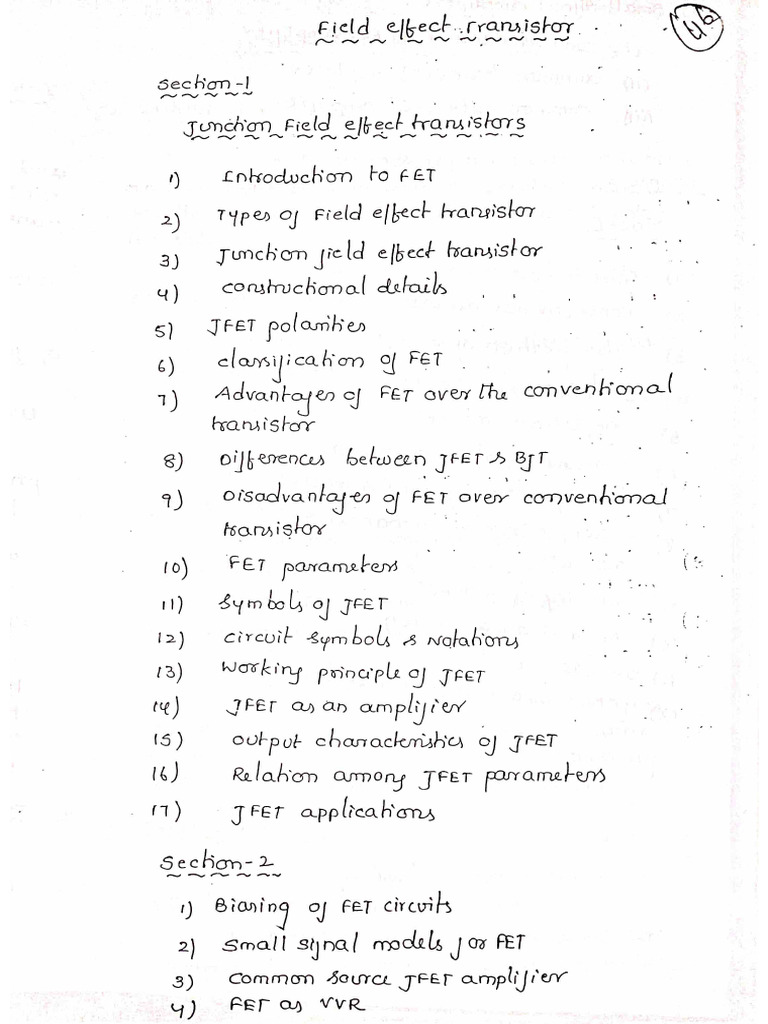 Field effect Transistor
46
Section-1
Junction Field effect transistors
1) Introduction to FET
2) Types of Field effect transistor
3) Junction field effect transistor
4) constructional details
5) JFET polarities
6) classification of FET
7) Advantages of FET over the conventional
transistor
8) Differences between JFET & BJT
9) Disadvantages of FET over conventional
transistor
10) FET parameters
11) Symbols of JFET
12) circuit symbols & Notations
13) Working principle of JFET
14) JFET as an amplifier
15) output characteristics of JFET
16) Relation among JFET parameters
17) JFET applications
Section-2
1) Biasing of FET circuits
2) Small signal models for FET
3) Common source JFET amplifier
4) FET as VVR